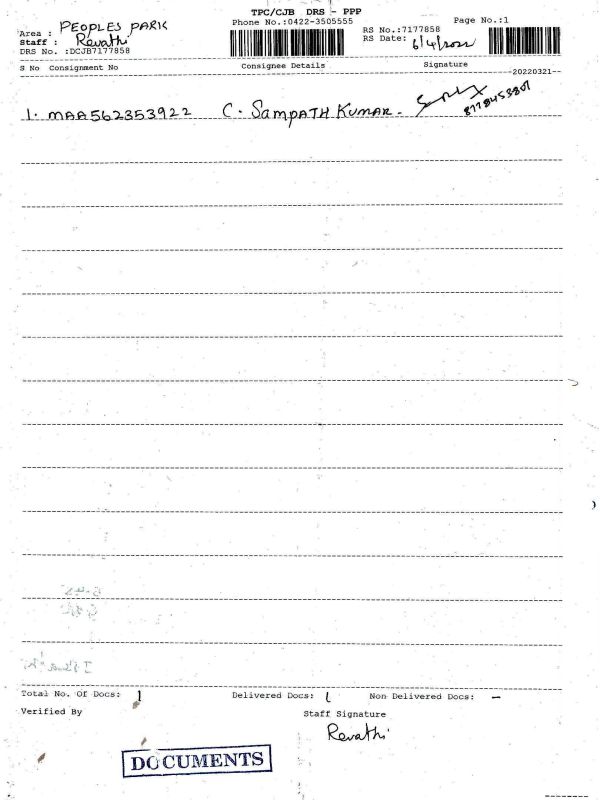 TPC/CJB DRS - PPP
Area : PEOPLES PARK
Phone No.:0422-3505555
Page No.:1
Staff : Revathi
RS No.:7177858
DRS No. :DCJB7177858
RS Date: 6/4/2022
S No Consignment No
Consignee Details
Signature
--20220321--
1. MAA562353922 C. SAMPATH KUMAR.
8778453807
Total No. Of Docs: 1
Delivered Docs: 1
Non Delivered Docs: -
Verified By
Staff Signature
Revathi
DOCUMENTS